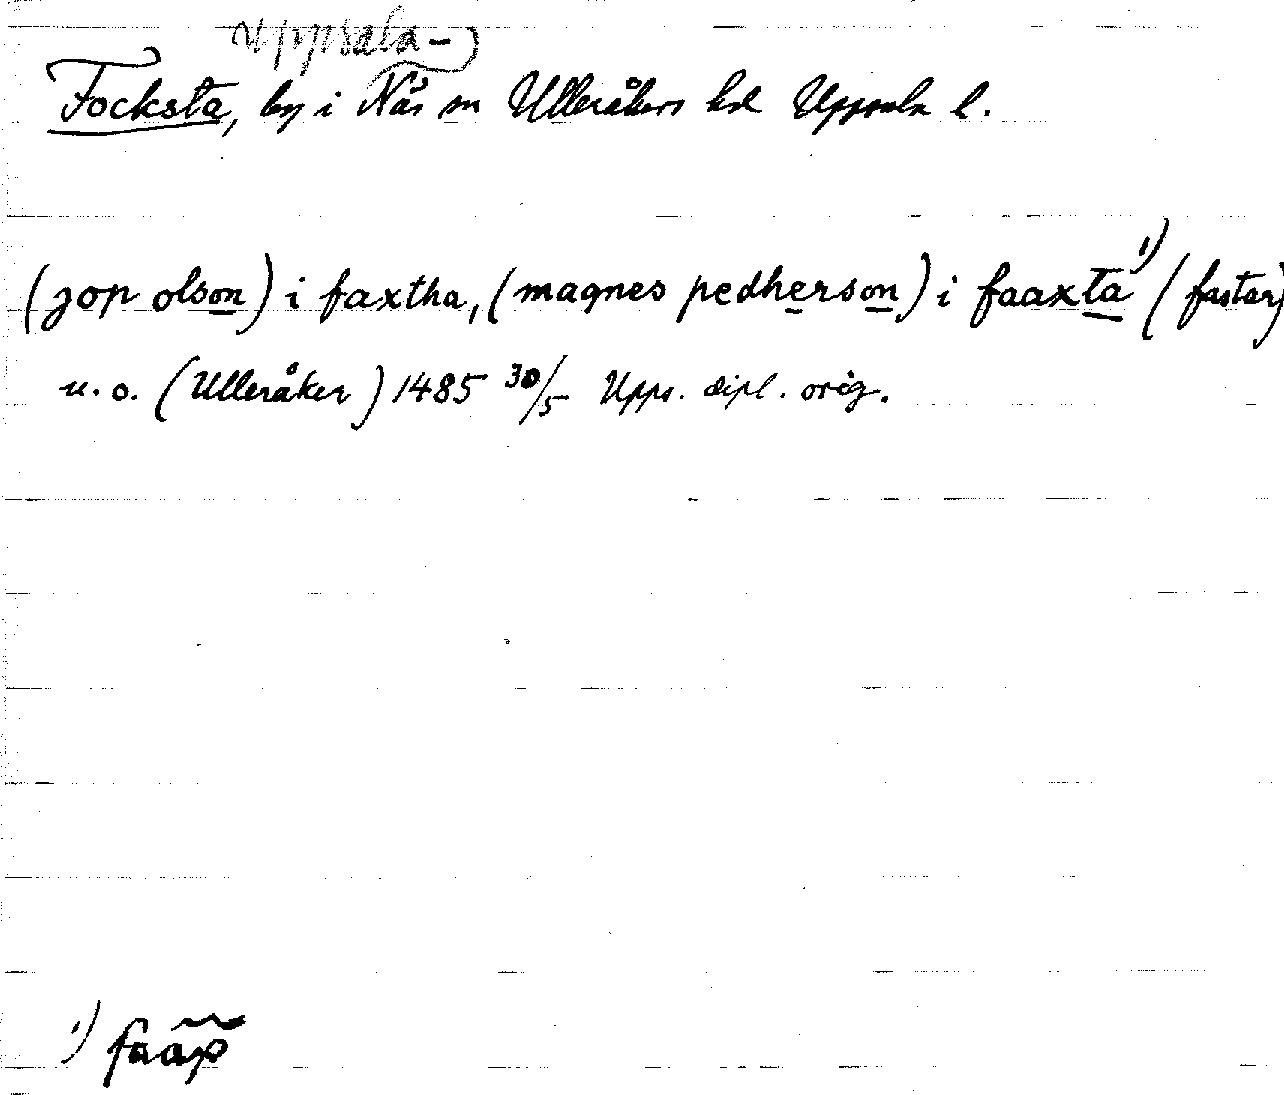 Uppsala-
Focksta, by i Näs sn Ulleråkers hd Uppsala l.
(jop olson) i faxtha, (magnes pedherson) i faaxta 1) (fastar)
u. o. (Ulleråker) 1485 30/5 Upps. dipl. orig.
1)